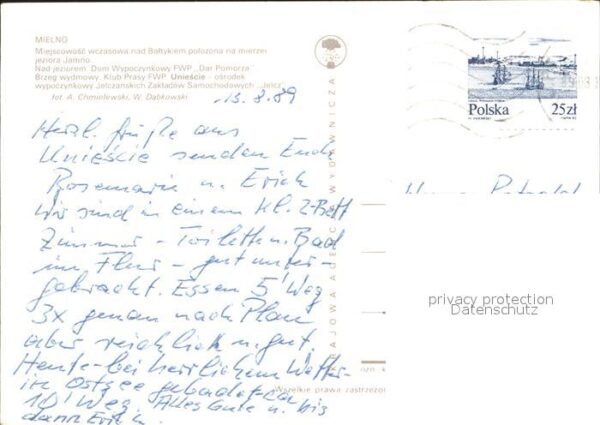 MIELNO
Miejscowość wczasowa nad Bałtykiem położona na mierzei
jeziora Jamno.
Nad jeziorem Dom Wypoczynkowy FWP „Dar Pomorza”
Brzeg wydmowy, Klub Prasy FWP. Unieście - ośrodek
wypoczynkowy Jelczańskich Zakładów Samochodowych „Jelcz”
fot. A. Chmielewski, W. Dąbkowski
13.8.89
Herzl. Grüße aus
Unieście senden Euch
Rosemarie u. Erich
Wir sind in einem kl. 2-Bett
Zimmer - Toilette u. Bad
im Flur - gut unter-
gebracht. Essen 5' Weg
3x genau nach Plan
aber reichlich u. gut.
Heute - bei herrlichem Wetter -
in Ostsee gebadet - ca
10' Weg. Alles Gute u. bis
dann Erich.
Polska 25 zł
KRAJOWA AGENCJA WYDAWNICZA
Wszelkie prawa zastrzeżo
privacy protection
Datenschutz